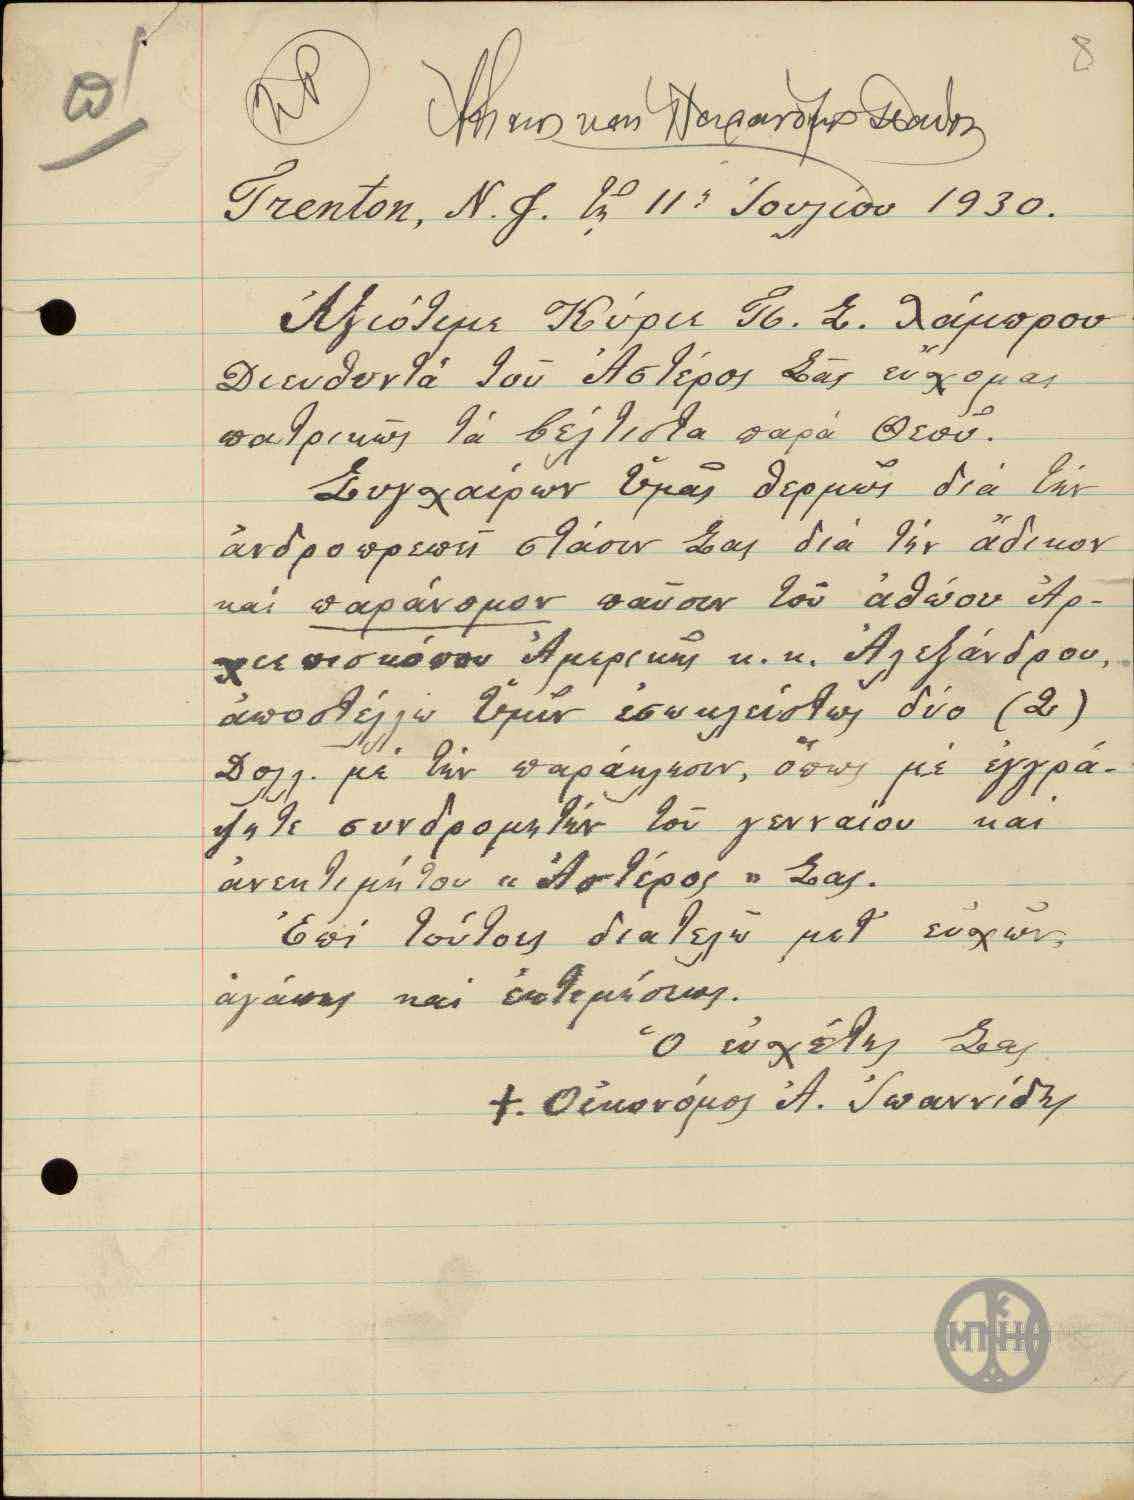 8
Trenton, N. J. τῇ 11ῃ Ἰουλίου 1930.
Ἀξιότιμε Κύριε Π. Σ. Λάμπρου
Διευθυντά τοῦ Ἀστέρος Σᾶς εὔχομαι
πατρικῶς τά βέλτιστα παρά Θεοῦ.
Συγχαίρων Ὑμᾶς θερμῶς διά τήν
ἀνδροπρεπῆ στάσιν Σας διά τήν ἄδικον
καί παράνομον παῦσιν τοῦ ἀθώου Ἀρ-
χιεπισκόπου Ἀμερικῆς κ. κ. Ἀλεξάνδρου,
ἀποστέλλω Ὑμῖν ἐσωκλείστως δύο (2)
Δολλ. μέ τήν παράκλησιν, ὅπως μέ ἐγγρά-
ψητε συνδρομητήν τοῦ γενναίου καί
ἀνεκτιμήτου "Ἀστέρος" Σας.
Ἐπί τούτοις διατελῶ μετ' εὐχῶν,
ἀγάπης καί ἐκτιμήσεως.
Ὁ εὐχέτης Σας
+. Οἰκονόμος Ἀ. Ἰωαννίδης
ΜΠΚΗ